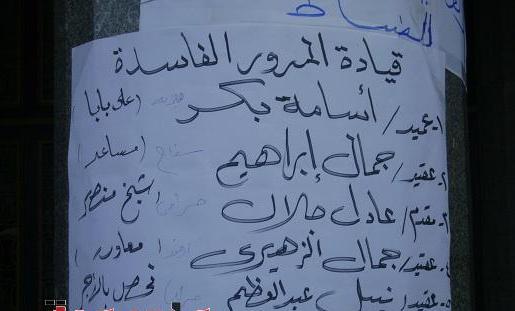 الضباط
قيادة المرور الفاسدة
١- عميد/ أسامة بكر (على بابا)
٢- عقيد/ جمال إبراهيم سفاح (مساعد)
٣- مقدم/ عادل جلال (شيخ منصر)
٤- عقيد/ جمال الزهيرى (معاون)
٥- عقيد/ نبيل عبد العظيم